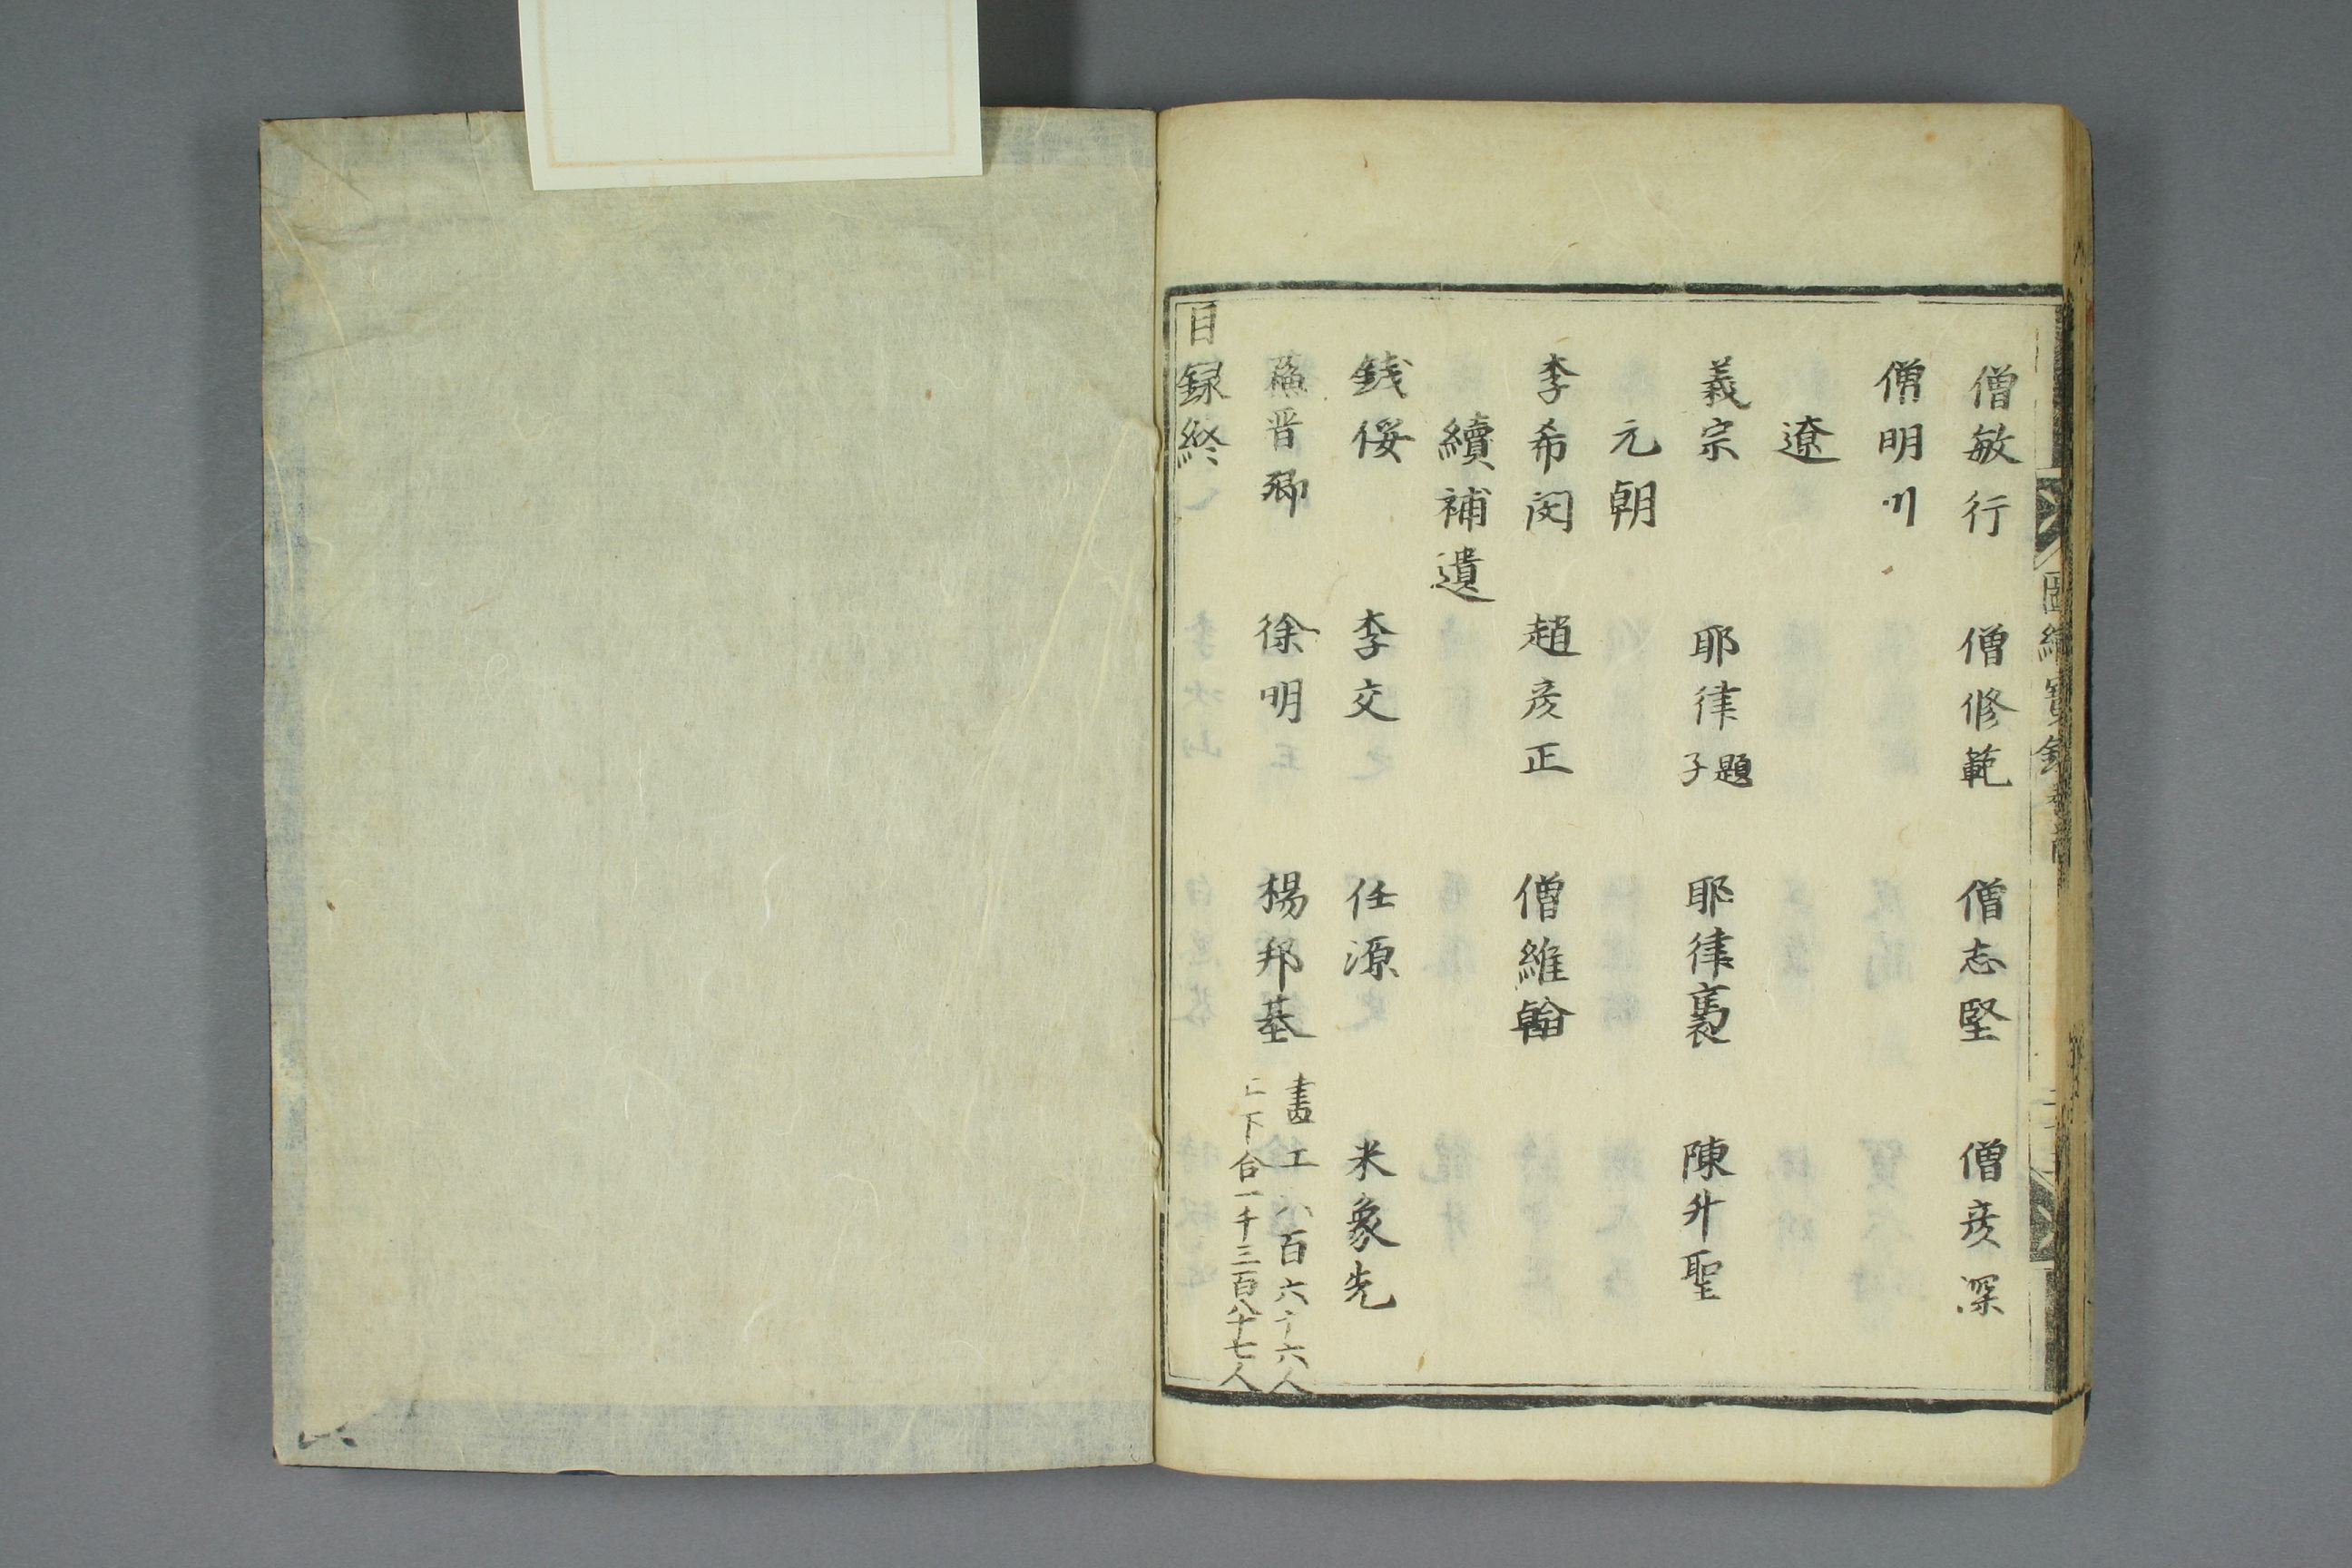 僧敏行 僧修範 僧志堅 僧彦深
僧明川
遼
義宗 耶律題子 耶律裏 陳升聖
元朝
李希闵 趙彦正 僧維翰
續補遺
銭佞 李交 任源 米象先
晋卿 徐明 楊邦基 畫工八百六十六人
上下合一千三百八十七人
目録終